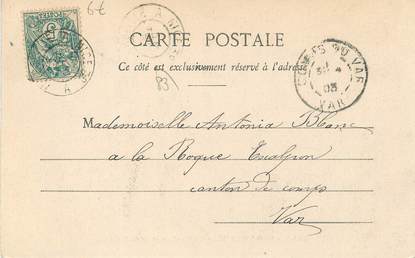 6€
CARTE POSTALE
Ce côté est exclusivement réservé à l'adresse
COMPS DU VAR
4
03
VAR
Mademoiselle Antonia Blanc
a la Roque Esclapon
canton de comps
Var